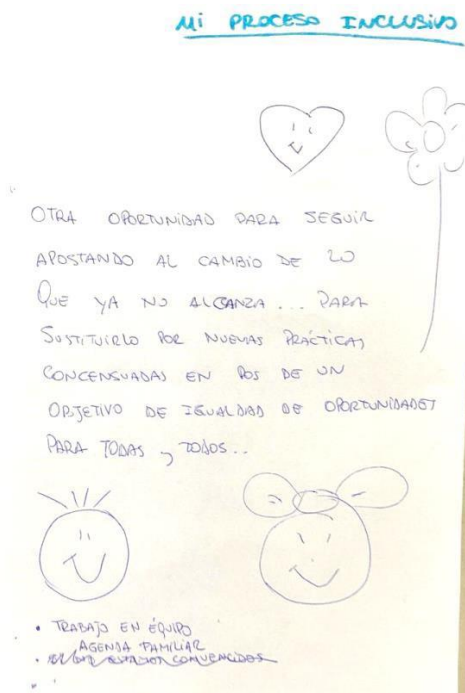 Mi PROCESO INCLUSIVO
OTRA OPORTUNIDAD PARA SEGUIR
APOSTANDO AL CAMBIO DE LO
QUE YA NO ALCANZA... PARA
SUSTITUIRLO POR NUEVAS PRÁCTICAS
CONCENSUADAS EN POS DE UN
OBJETIVO DE IGUALDAD DE OPORTUNIDADES
PARA TODAS y TODOS..
• TRABAJO EN ÉQUIPO
AGENDA FAMILIAR